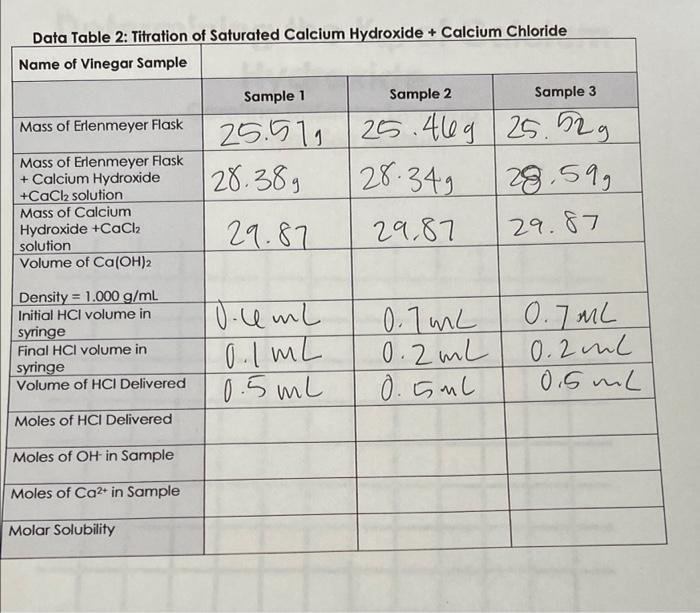 Data Table 2: Titration of Saturated Calcium Hydroxide + Calcium Chloride
Name of Vinegar Sample
Sample 1 Sample 2 Sample 3
Mass of Erlenmeyer Flask 25.51g 25.46g 25.52g
Mass of Erlenmeyer Flask
+ Calcium Hydroxide
+CaCl₂ solution 28.38g 28.34g 28.59g
Mass of Calcium
Hydroxide +CaCl₂
solution 29.87 29.87 29.87
Volume of Ca(OH)₂
Density = 1.000 g/mL
Initial HCl volume in
syringe 0.6 mL 0.7 mL 0.7 mL
Final HCl volume in
syringe 0.1 mL 0.2 mL 0.2 mL
Volume of HCl Delivered 0.5 mL 0.5 mL 0.5 mL
Moles of HCl Delivered
Moles of OH- in Sample
Moles of Ca²⁺ in Sample
Molar Solubility